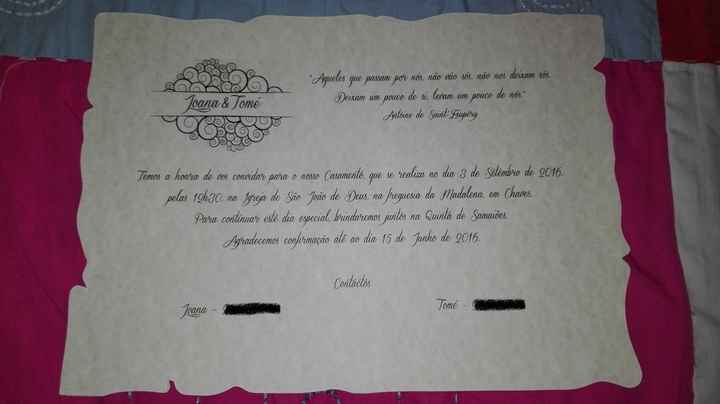 Joana & Tomé
"Aqueles que passam por nós, não vão sós, não nos deixam sós.
Deixam um pouco de si, levam um pouco de nós."
Antoine de Saint-Exupéry
Temos a honra de vos convidar para o nosso Casamento, que se realiza no dia 3 de Setembro de 2016,
pelas 12h30, na Igreja de São João de Deus, na freguesia da Madalena, em Chaves.
Para continuar este dia especial, brindaremos juntos na Quinta de Samaiões.
Agradecemos confirmação até ao dia 15 de Junho de 2016.
Contactos
Joana -
Tomé -